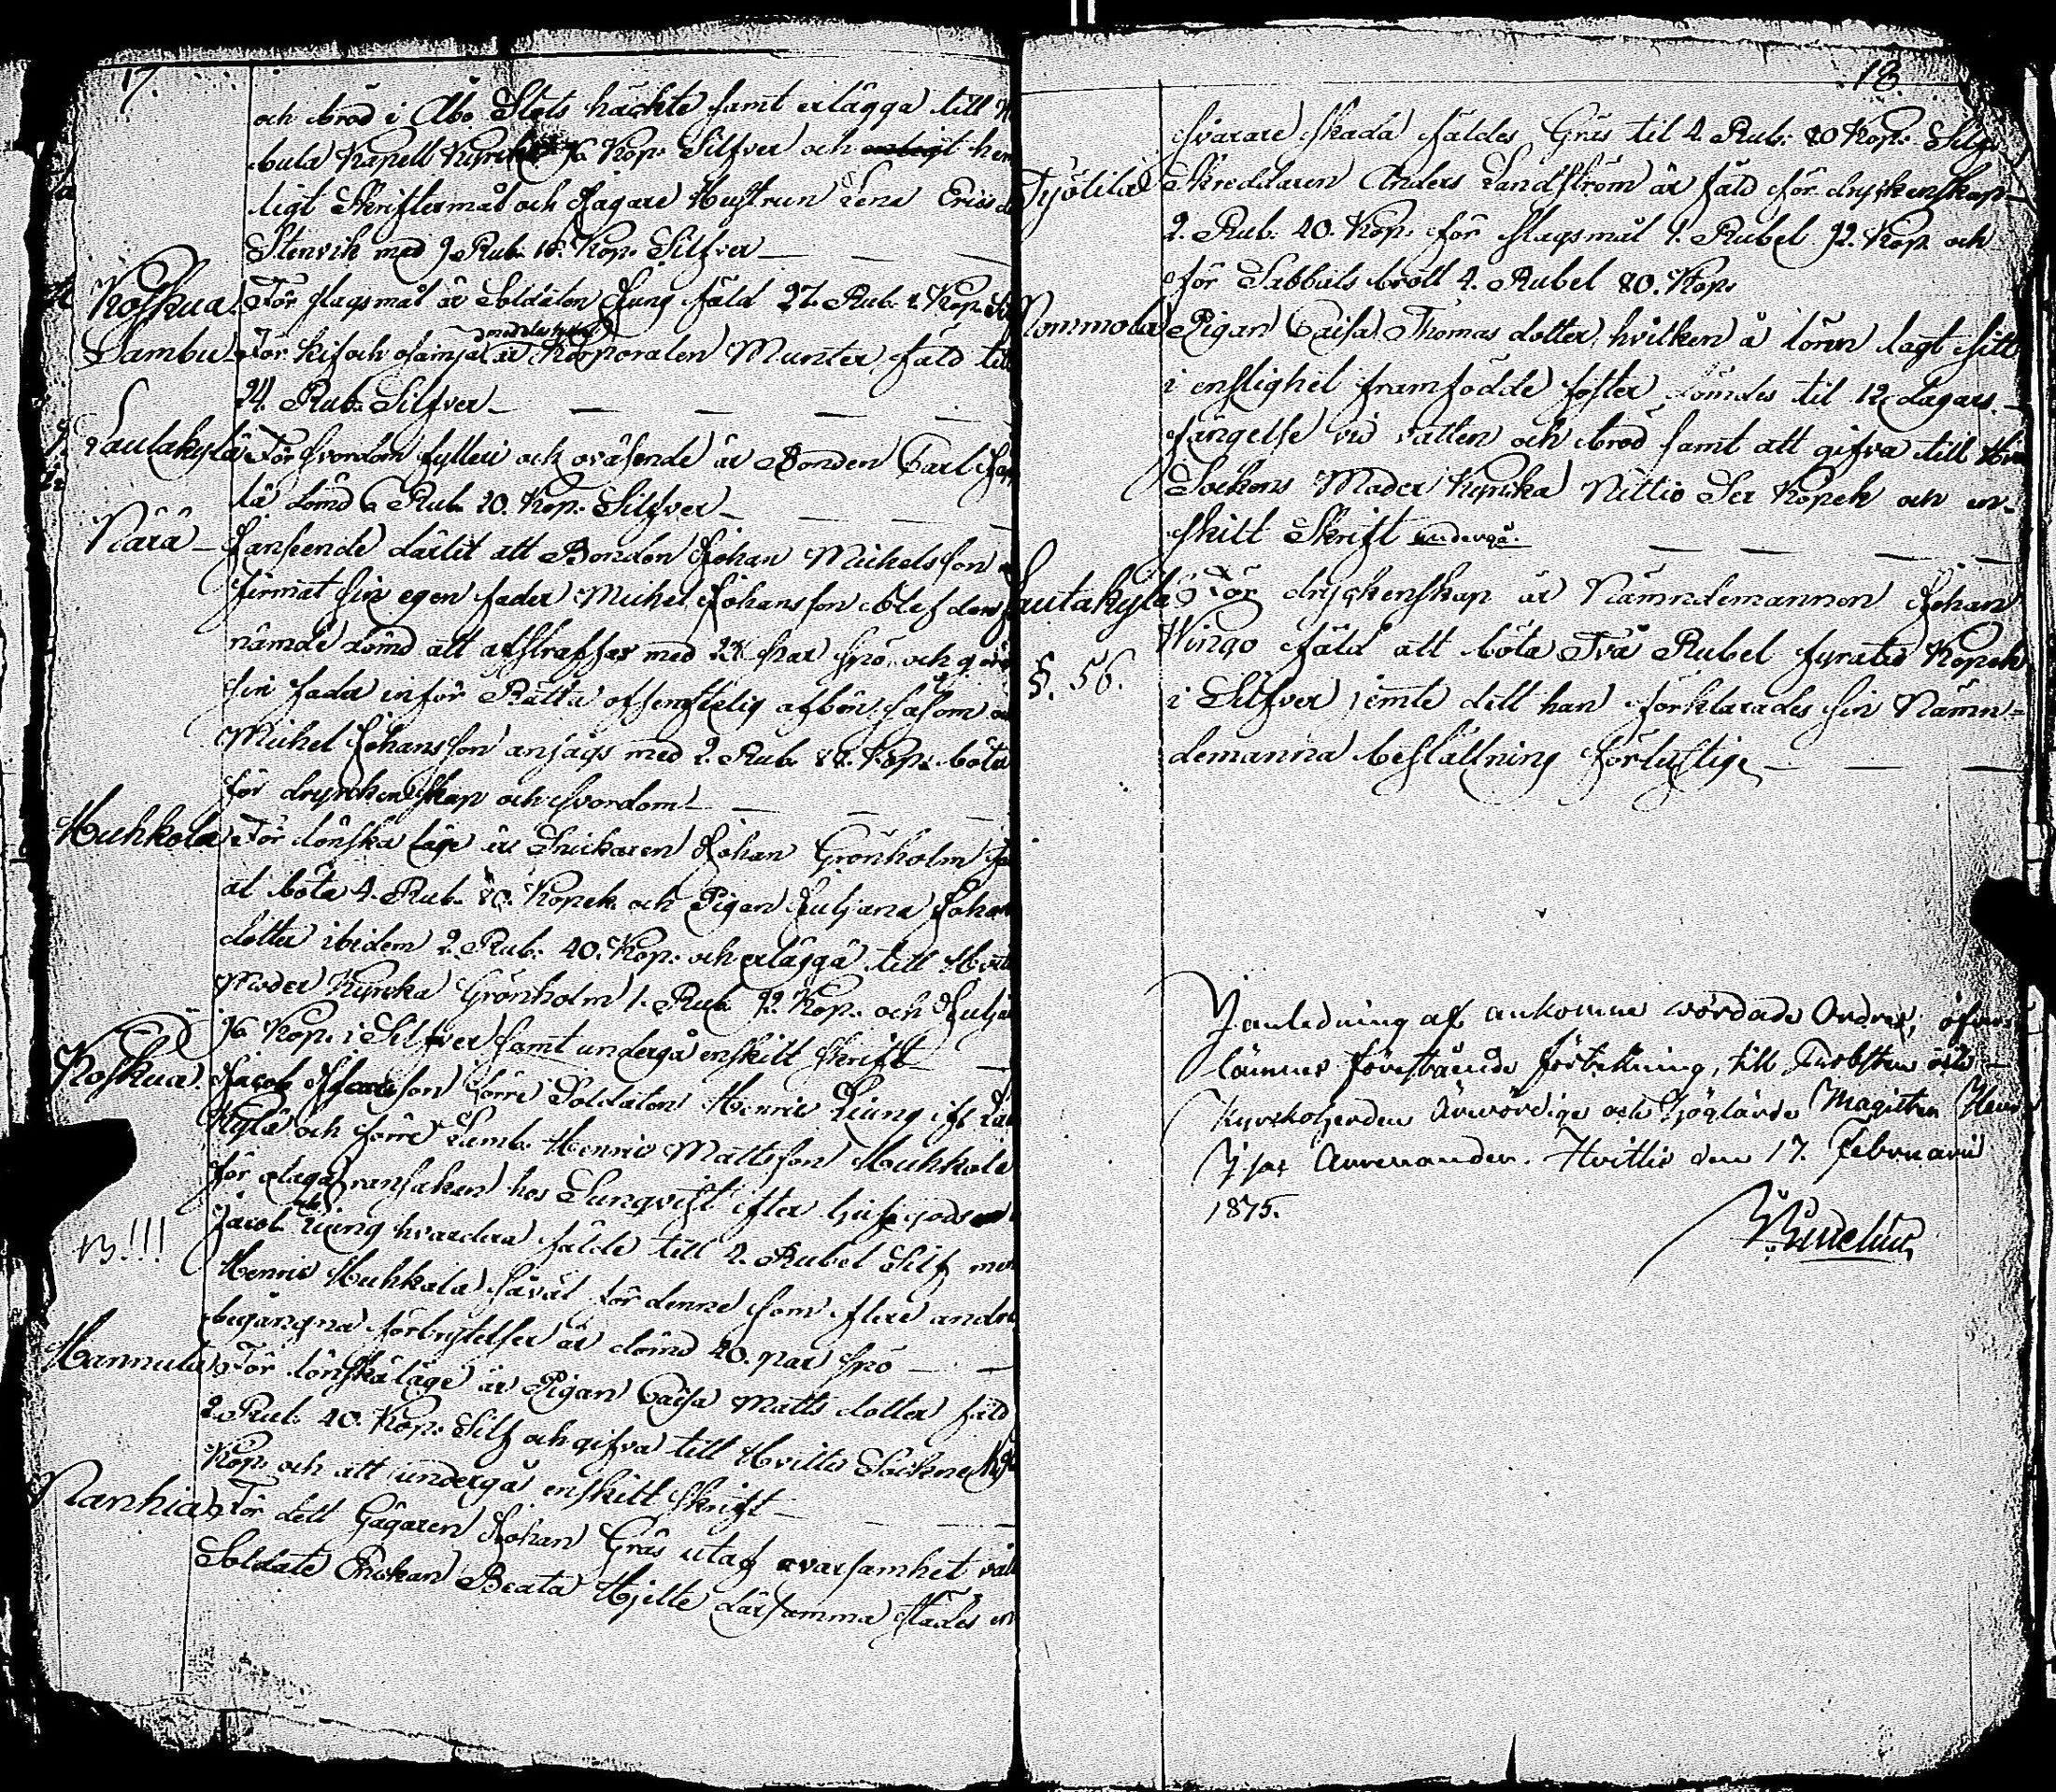 17.
och bröd i Åbo Slots häckte samt erlägga till
bula Kapell Kyrcka 96 Kop. Silfver och
ligt Skriftermål och Hustrun Lena Erics
Stenvik med 9 Rub. Kop. Silfver
Koskua. För slagsmål är Soldaten Ljung fäld 27. Rub. Kop.
Sambu För kif och osämja är Korporalen Munter fäld til
24. Rub. Silfver
Lautakylä För svordom fylleri och oväsende är Bonden Carl
lä dömd 6 Rub. 20. Kop. Silfver
Nära I anseende därtil att Bonden Johan Michelsson
firmat sin egen fader Michel Johansson blef den
nämde dömd att afstraffas med 24 par spö och göra
sin fader inför Rätta offentelig afbön, såsom
Michel Johansson ansågs med 2. Rub. 88. Kop. böta
för dryckenskap och svordom
Huhkola För lönskaläge är Snickaren Johan Grönholm
at böta 4. Rub. 80. Kopek och Pigan Juljana Johan
dotter ibidem 2. Rub. 40. Kop. och erlägga till Hvitt
Moder Kyrcka Grönholm 1. Rub. 92. Kop. och Julja
96 Kop. i Silfver samt undergå enskilt skrift
Koskua. Jacob förre Soldaten Henric Liung
Kylä och förre Lamb. Henric Mattsson Huhkola
för olaga ransakan hos Sunqvist efter tjufgods
Jacob och Liung hvardera fälde till 2. Rubel Silf
NB!!! Henric Huhkala såväl för denne som flere andre
begångna förbrytelser är dömd 40. par spö
Hannula För lönskaläge är Pigan Caisa Matts dotter fäld
2. Rub. 40. Kop. Silf och gifva till Hvittis Sockne
Kop. och att undergå enskilt skrift
Ranhia För dett Gågaren Johan Gräs utaf ovarsamhet våll
Soldate Enckan Beata Hjelte därsamma städes
18.
svarare skada fäldes Gräs til 4. Rub. 80 Kop. Silfv
Työtilä Skreddaren Anders Sandström är fäld för dryckenskap
2. Rub. 40. Kop. för slagsmål 1. Rubel 92. Kop. och
för Sabbats brott 4. Rubel 80. Kop.
Nommola Pigan Caisa Thomas dotter, hvilken å lönn lagt sitt
i enslighet framfödde foster dömdes til 12 dagars
fängelse vid vatten och bröd samt att gifva till
Sockens Moder Kyrcka Nittio Sex Kopek och en-
skilt Skrift undergå.
Lautakylä För dryckenskap är Nämndemannen Johan
Wingo fäld att böta Två Rubel fyratio Kopek
§. 56. i Silfver, jemte dett han förklarades sin Nämn-
demanna beställning förlustig
I anledning af ankomne vördade Ordres, öfver
lämnes förestående förtekning, till Probsten och
Kyrckoherden Ärevördige och Höglärde Magistren
Arrenander. Hvittis den 17. Februarii
1815.